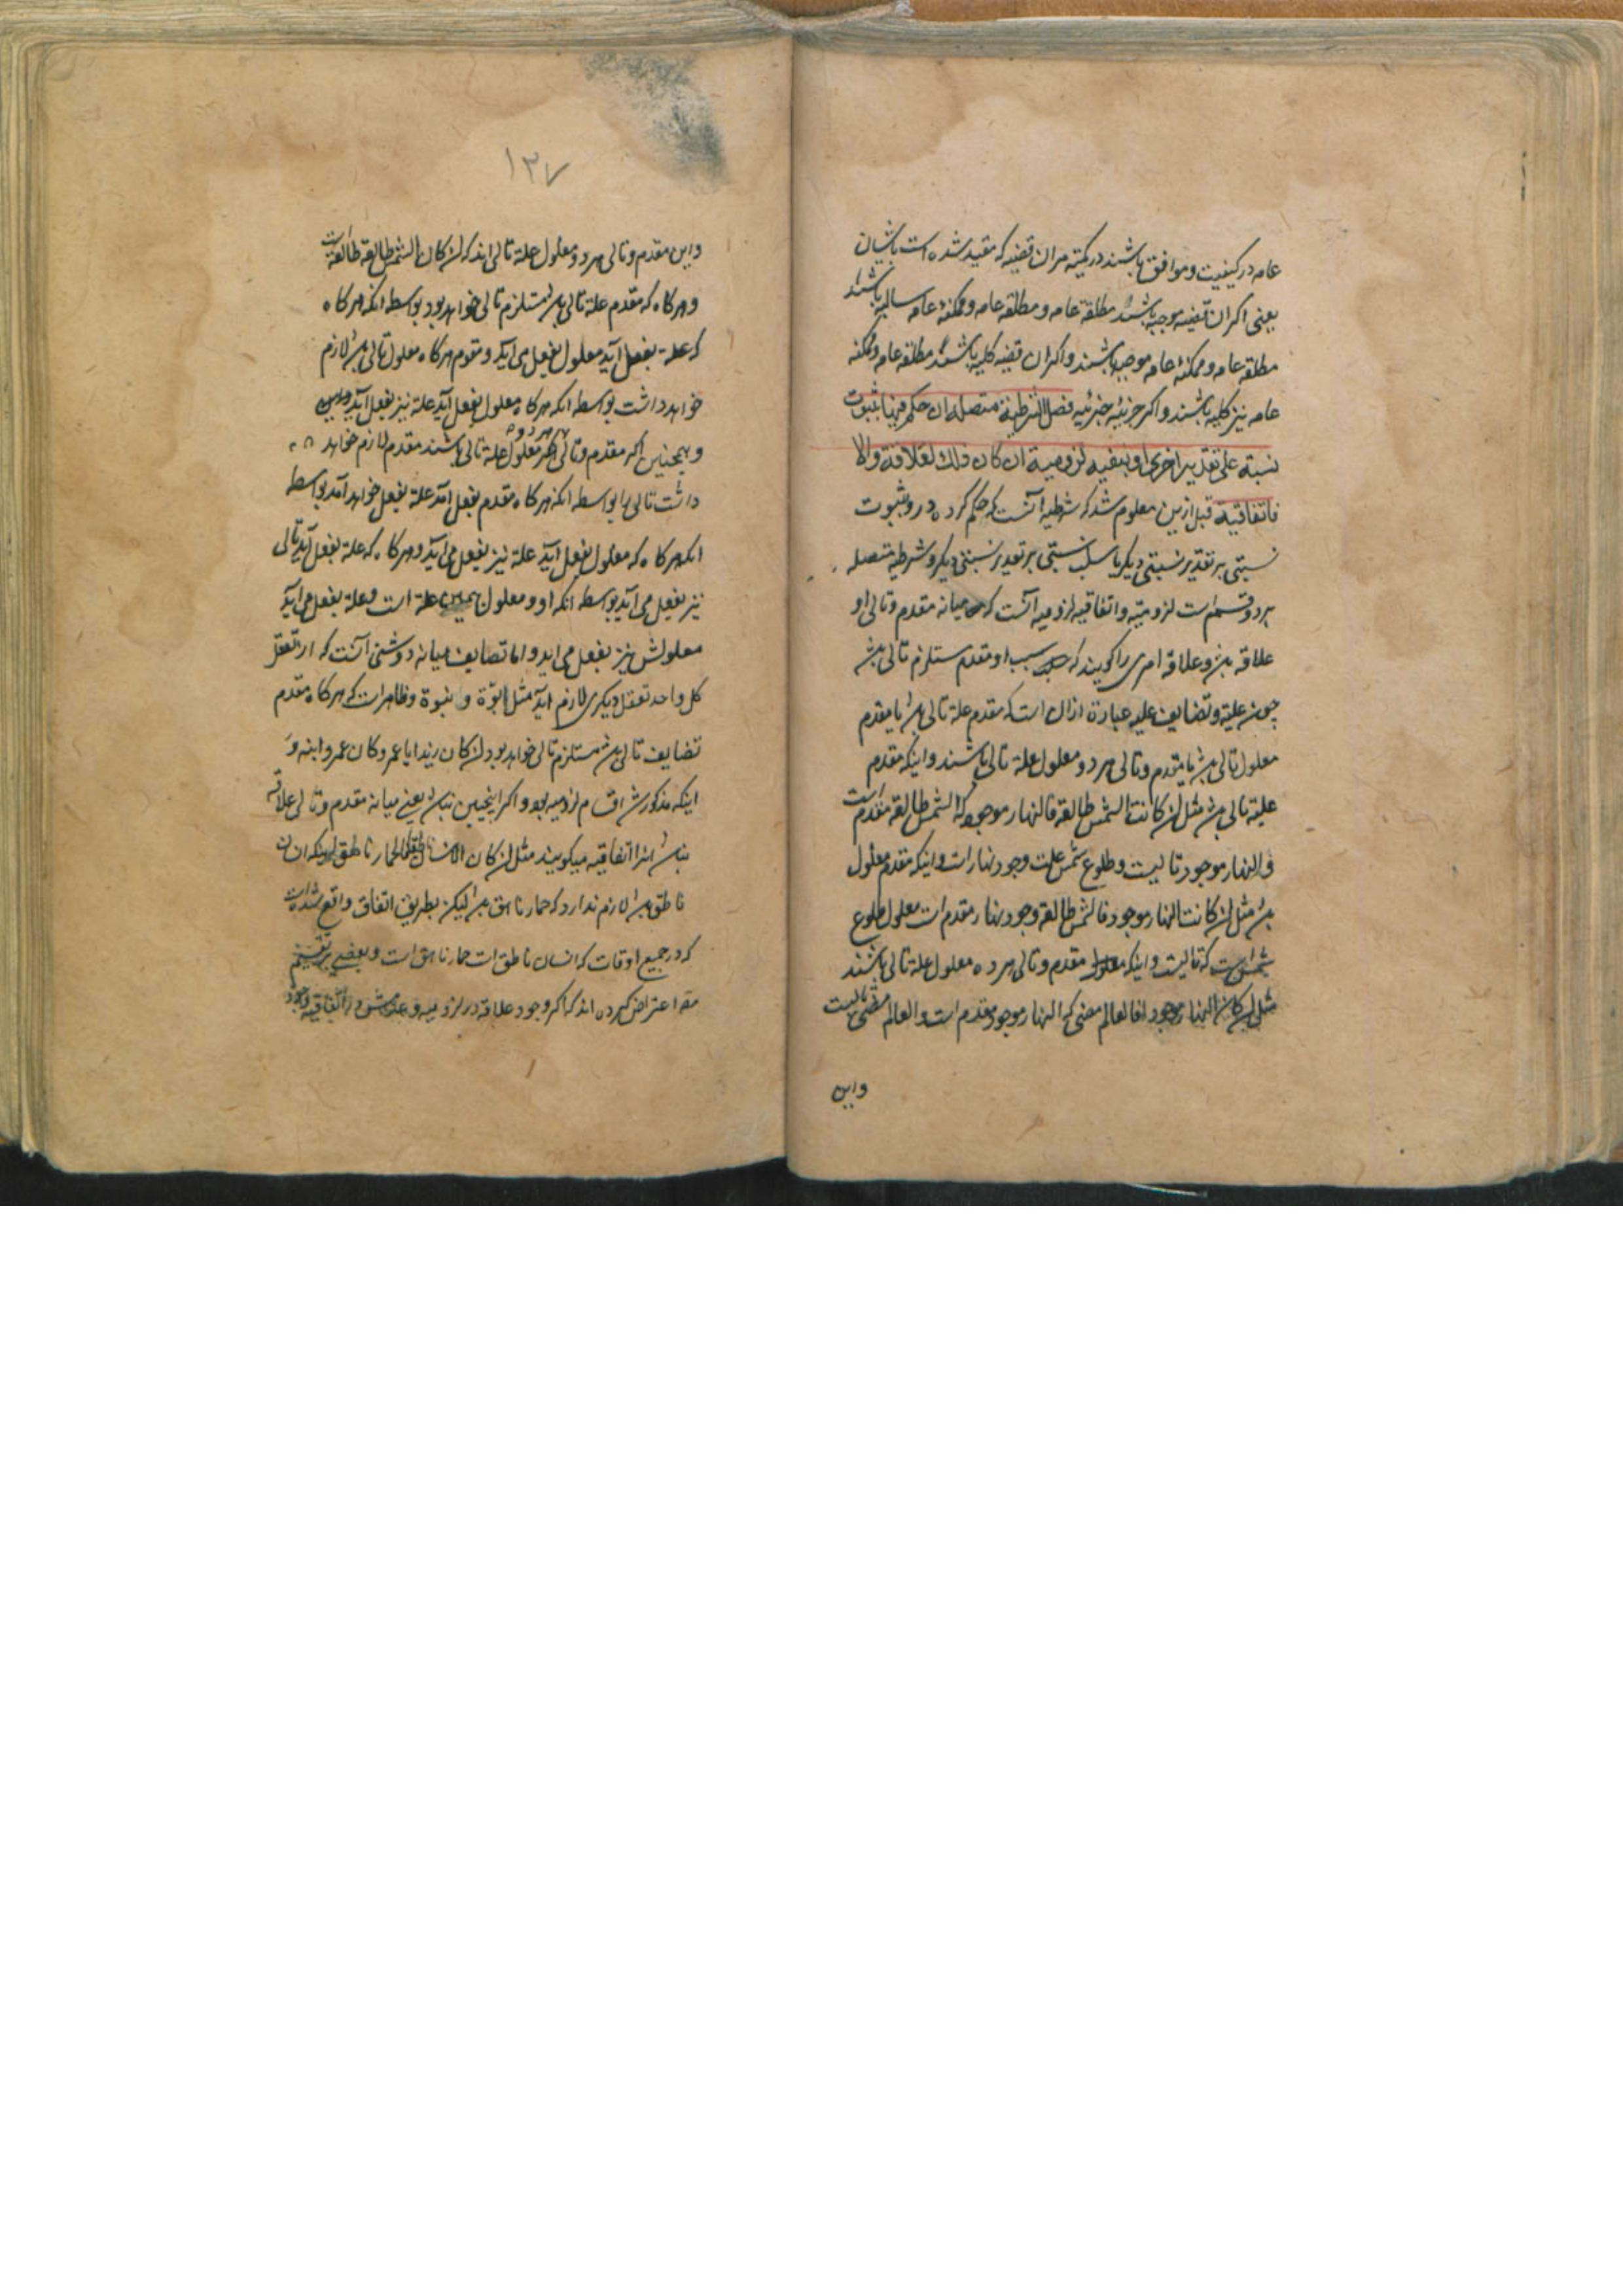 عامه در کیفیت و موافق باشند در کمیته مران قضیه که مقید شده است باشان
یعنی اکر ان قضیه موجبه باشند مطلقه عامه و مطلقه عامه و ممکنهٔ عامه سالبه باشند
مطلقه عامه و ممکنهٔ عامه موجبه باشند و اکر ان قضیه کلیه باشند مطلقه عامه و ممکنه
عامه نیز کلیه باشند و اکر جزئیه جزئیه فصل الشرطیة متصلة ان حکم فیها بثبوت
نسبة علی تقدیر اخری او بنفیه لزومیة ان کان ذلك لعلاقة والا
فاتفاقیة قبل ازین معلوم شد که شرطیه آنست که حکم کرده در و بثبوت
نسبتی بر تقدیر نسبتی دیکر یا سلب نسبتی بر تقدیر نسبتی دیکر و شرطیه متصله
بر دو قسم است لزومیه و اتفاقیه لزومیه آنست که میانه مقدم و تالی او
علاقه باشد و علاقه امری را کویند که سبب او مقدم مستلزم تالی باشد
چون علیة و تضایف علیه عبارة ازان است که مقدم علة تالی باشد یا مقدم
معلول تالی باشد یا مقدم و تالی هر دو معلول علة تالی باشند و اینکه مقدم
علیة تالی باشد مثل ان کانت الشمس طالعة فالنهار موجود که الشمس طالعة مقدم است
و النهار موجود تالیست و طلوع شمس علت وجود نهار است و اینکه مقدم معلول
باشد مثل ان کانت النهار موجود فالشمس طالعة وجود نهار مقدم است معلول طلوع
شمس است که تالیست و اینکه مقدم و تالی هر ده معلول علة تالی باشند
مثل ان کان النهار موجودا فالعالم مضی که النهار موجود مقدم است و العالم مضی تالیست
واین
۱۳۷
واین مقدم و تالی هر دو معلول علة تالی اند که ان کان الشمس طالعة طالعة است
و هر کاه که مقدم علة تالی باشد مستلزم تالی خواهد بود بواسطه انکه هر کاه
که علة بفعل آید معلول بفعل می آید و مقدم هر کاه معلول تالی باشد لازم
خواهد داشت بواسطه انکه هر کاه معلول بفعل آید علة نیز بفعل آید
و همچنین اکر مقدم و تالی هر دو معلول علة تالی باشند مقدم لازم خواهد
داشت تالی را بواسطه انکه هر کاه مقدم بفعل آمد علة بفعل خواهد آمد بواسطه
انکه هر کاه که معلول بفعل آید علة نیز بفعل می آید و هر کاه که علة بفعل آید تالی
نیز بفعل می آید بواسطه انکه او و معلول همین علة است و علة بفعل می آید
معلولش نیز بفعل می اید و اما تضایف میانه دو شئی آنست که از تعقل
کل واحد تعقل دیکری لازم آید مثل ابوّة و بنوة و ظاهر است که هر کاه مقدم
تضایف تالی باشد مستلزم تالی خواهد بود ان کان زید ابا عمرو کان عمرو ابنه و
اینکه مذکور شد اقسام لزومیه بود و اکر اینچنین نباشد یعنی میانه مقدم و تالی علاقه
نباشد انرا اتفاقیه میکویند مثل ان کان الانسان ناطقا فالحمار ناهق اینکه انسان
ناطق باشد لازم ندارد که حمار ناهق باشد لیکن بطریق اتفاق واقع شده است
که در جمیع اوقات که انسان ناطق است حمار ناهق است و بعضی بر تقسیم
مقدّ اعتراض کرده اند که اکر وجود علاقه در لزومیه و عدمش در اتفاقیه